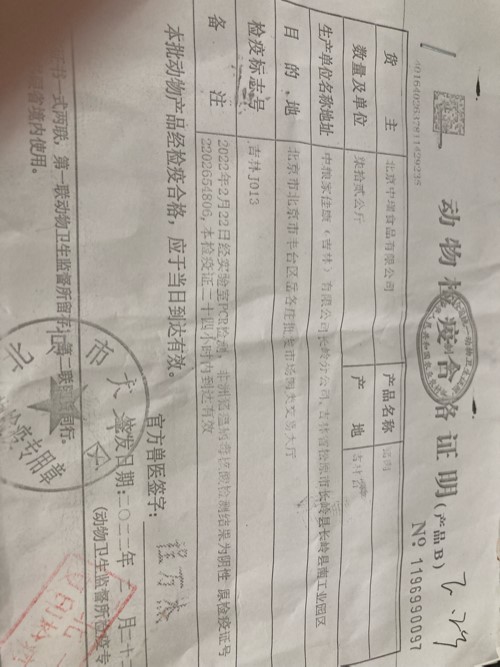 动物检疫合格证明(产品B)
№ 1196990097
货 主 北京中瑞食品有限公司 产品名称
数量及单位 柒拾贰公斤 产 地 吉林省
生产单位名称地址 中粮家佳康(吉林)有限公司长岭分公司,吉林省松原市长岭县长岭县南工业园区
目 的 地 北京市北京市丰台区岳各庄批发市场肉类交易大厅
检疫标志号 吉林J013
备 注 2022年2月22日经实验室PCR检测,非洲猪瘟病毒核酸检测结果为阴性 原检疫证号
2202654806,本检疫证二十四小时内到达有效
本批动物产品经检疫合格,应于当日到达有效。
官方兽医签字:
签发日期:二〇二二年 二 月二十
(动物卫生监督所检疫专
书一式两联,第一联动物卫生监督所留存,第二联 同行。
境内使用。